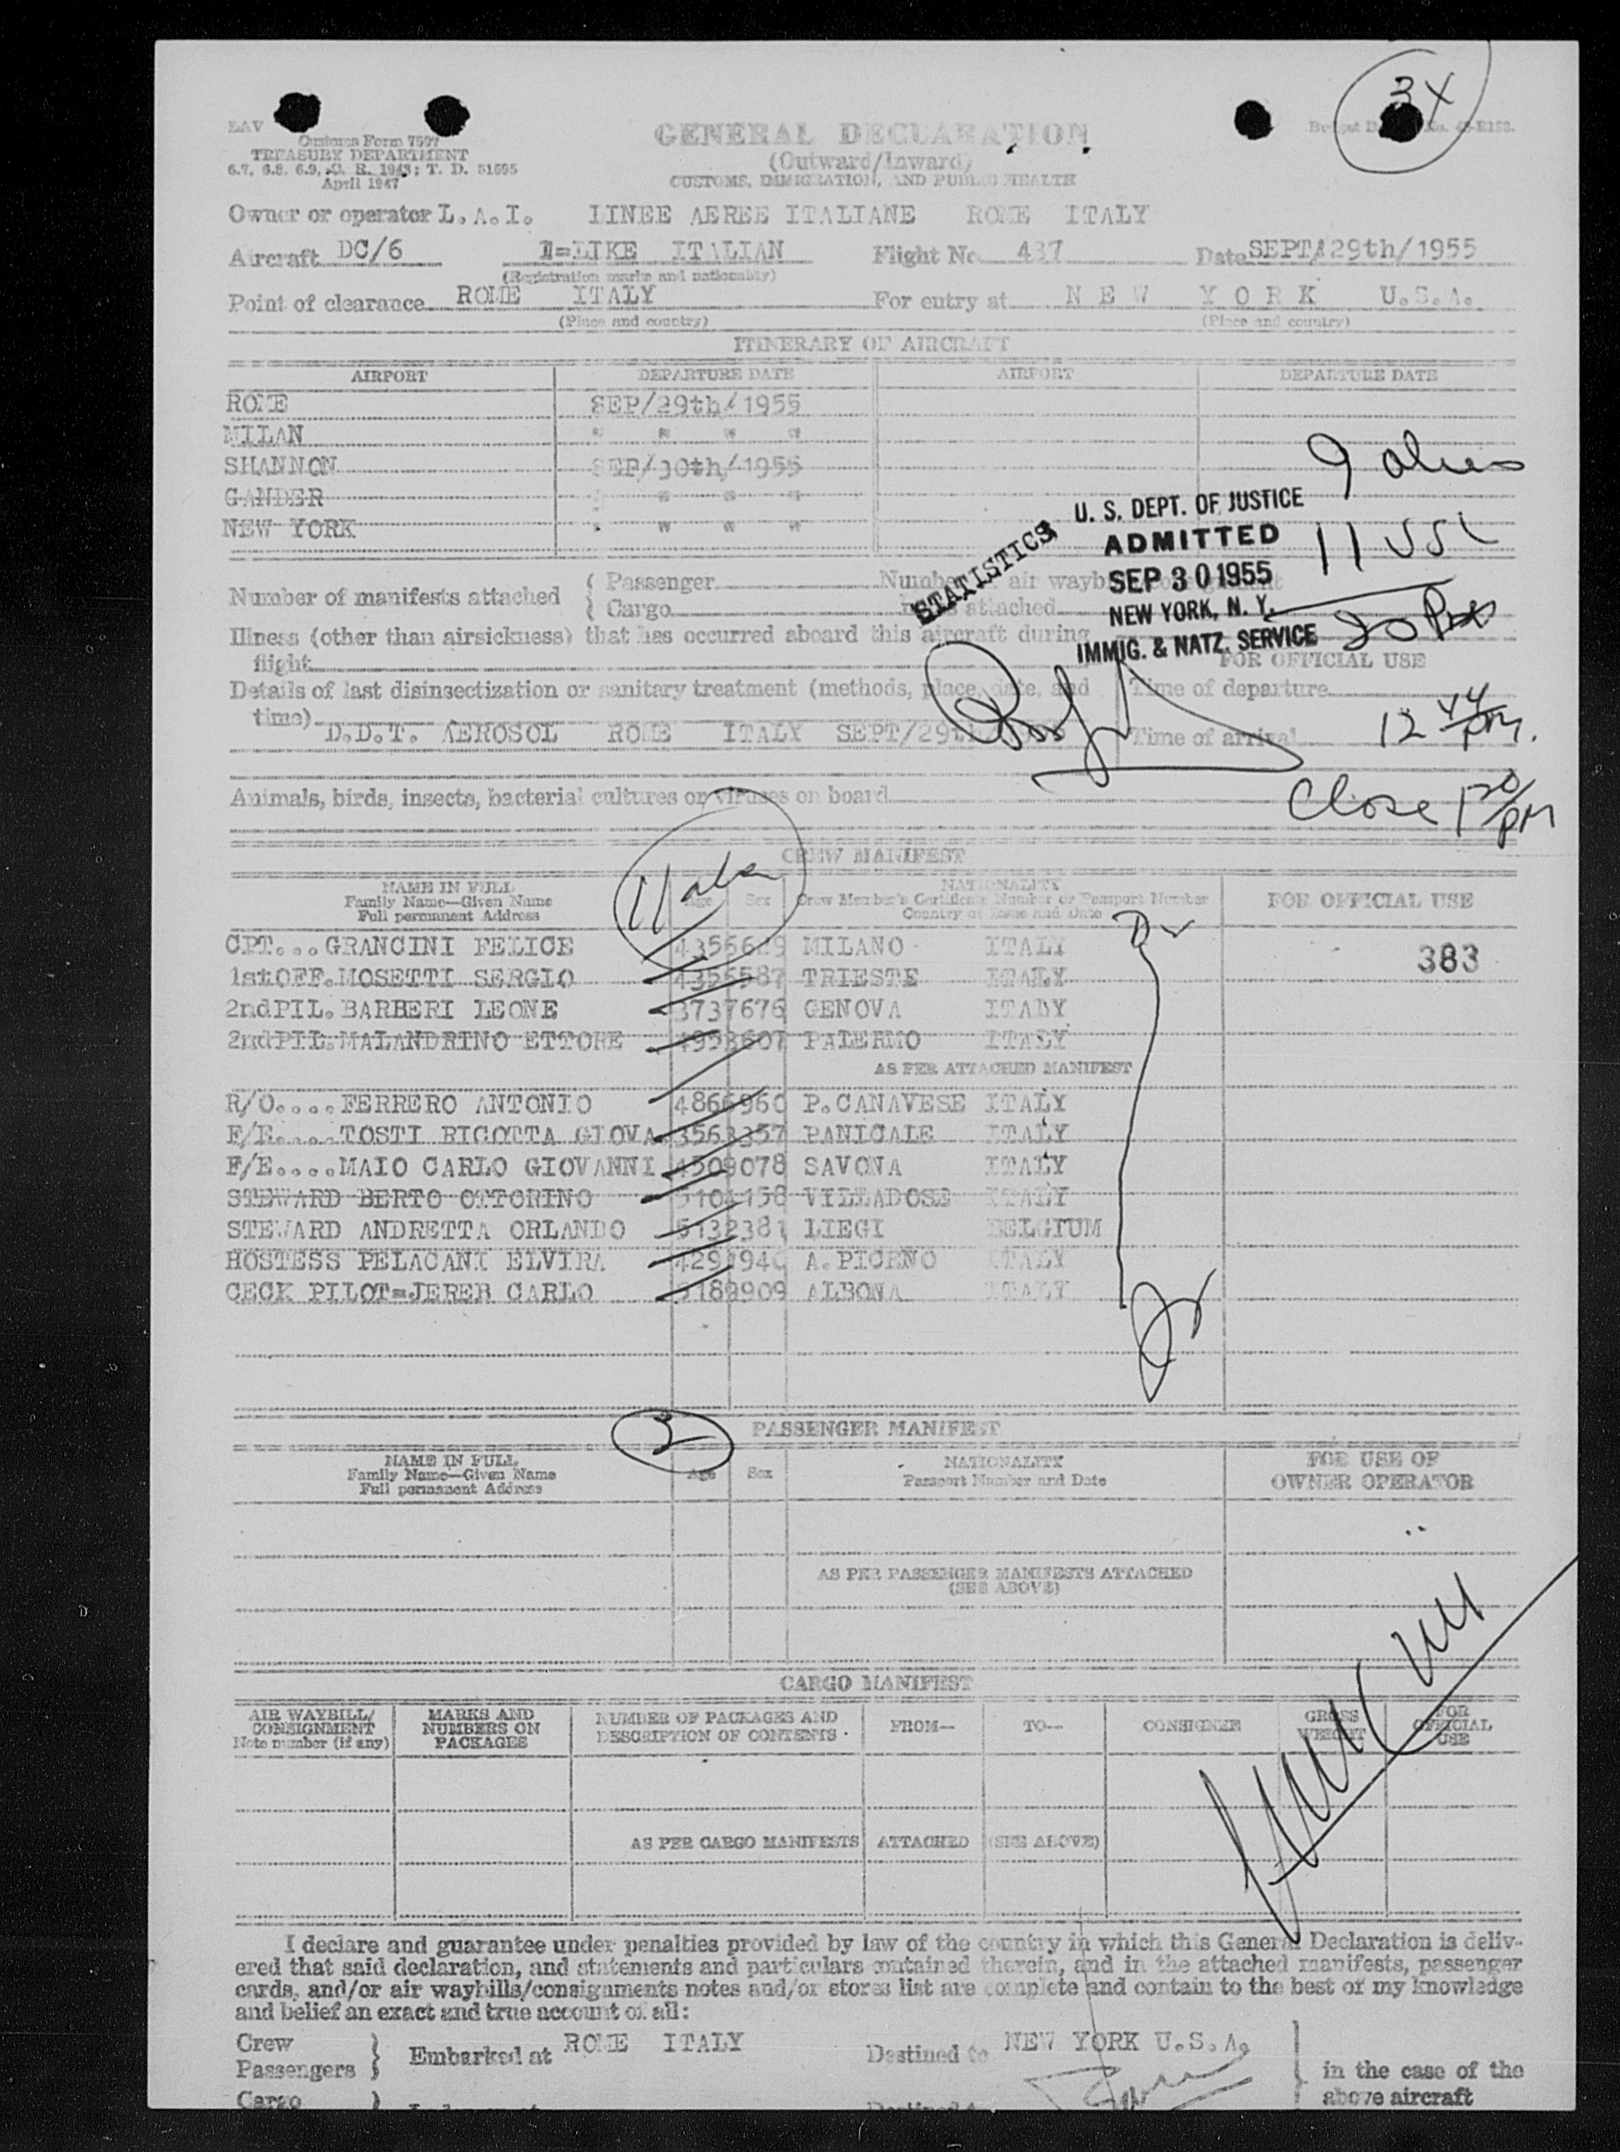 34
LAV
Customs Form 7507
TREASURY DEPARTMENT
6.7, 6.8, 6.9, C. R. 1943; T. D. 51695
April 1947
GENERAL DECLARATION
(Outward/Inward)
CUSTOMS, IMMIGRATION, AND PUBLIC HEALTH
Owner or operator L.A.I. LINEE AEREE ITALIANE ROME ITALY
Aircraft DC/6 I=LIKE ITALIAN Flight No. 437 Date SEPT/29th/1955
(Registration marks and nationality)
Point of clearance ROME ITALY For entry at NEW YORK U.S.A.
(Place and country) (Place and country)
ITINERARY OF AIRCRAFT
AIRPORT DEPARTURE DATE AIRPORT DEPARTURE DATE
ROME SEP/29th/1955
MILAN " " " "
SHANNON SEP/30th/1955
GANDER " " " "
NEW YORK " " " "
9 aliens
11 USC
20 Pax
STATISTICS
U. S. DEPT. OF JUSTICE
ADMITTED
SEP 30 1955
NEW YORK, N. Y.
IMMIG. & NATZ. SERVICE
Number of manifests attached { Passenger Number air waybills
Cargo attached
Illness (other than airsickness) that has occurred aboard this aircraft during
flight
FOR OFFICIAL USE
Details of last disinsectization or sanitary treatment (methods, place, date, and
time) D.D.T. AEROSOL ROME ITALY SEPT/29th/
Time of departure
Time of arrival 12 44 PM.
Close 1 20 PM
Animals, birds, insects, bacterial cultures or viruses on board
CREW MANIFEST
11 alien
NAME IN FULL
Family Name—Given Name
Full permanent Address
Age Sex
NATIONALITY
Crew Member's Certificate Number or Passport Number
Country of Issue and Date
FOR OFFICIAL USE
CPT...GRANCINI FELICE 4356649 MILANO ITALY
383
1stOFF.MOSETTI SERGIO 4356587 TRIESTE ITALY
2ndPIL.BARBERI LEONE 3737676 GENOVA ITALY
2ndPIL.MALANDRINO ETTORE PALERMO ITALY
AS PER ATTACHED MANIFEST
R/O....FERRERO ANTONIO 4866960 P.CANAVESE ITALY
F/E....TOSTI RICOTTA GIOVA. PANICALE ITALY
F/E....MAIO CARLO GIOVANNI 4509078 SAVONA ITALY
STEWARD BERTO OTTORINO VILLADOSE ITALY
STEWARD ANDRETTA ORLANDO 5132381 LIEGI BELGIUM
HOSTESS PELACANI ELVIRA A.PICENO ITALY
CECK PILOT=JERER CARLO ALBONA ITALY
3
PASSENGER MANIFEST
NAME IN FULL
Family Name—Given Name
Full permanent Address
Age Sex
NATIONALITY
Passport Number and Date
FOR USE OF
OWNER OPERATOR
AS PER PASSENGER MANIFESTS ATTACHED
(SEE ABOVE)
CARGO MANIFEST
AIR WAYBILL/
CONSIGNMENT
Note number (if any)
MARKS AND
NUMBERS ON
PACKAGES
NUMBER OF PACKAGES AND
DESCRIPTION OF CONTENTS
FROM—
TO—
CONSIGNEE
GROSS
WEIGHT
FOR
OFFICIAL
USE
AS PER CARGO MANIFESTS ATTACHED (SEE ABOVE)
I declare and guarantee under penalties provided by law of the country in which this General Declaration is deliv-
ered that said declaration, and statements and particulars contained therein, and in the attached manifests, passenger
cards, and/or air waybills/consignments notes and/or stores list are complete and contain to the best of my knowledge
and belief an exact and true account of all:
Crew
Passengers } Embarked at ROME ITALY Destined to NEW YORK U.S.A. } in the case of the
above aircraft
Cargo